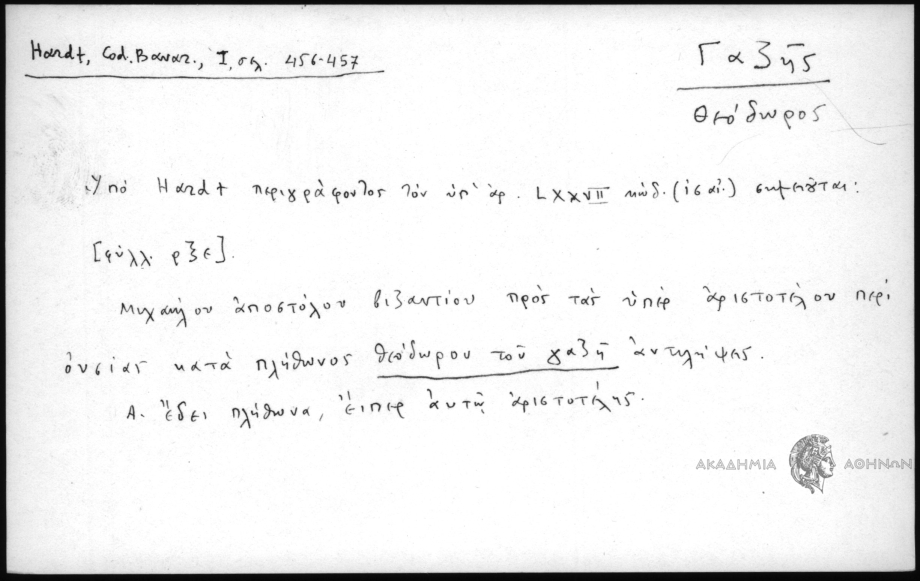 Hardt, Cod. Bavar., I, σελ. 456-457
Γαζῆς
Θεόδωρος
Ὑπὸ Hardt περιγράφοντος τὸν ὑπ' ἀρ. LXXVII κώδ. (ις αἰ.) σημειοῦται:
[φύλλ. ρξε].
Μιχαήλου ἀποστόλου βιζαντίου πρὸς τὰς ὑπὲρ ἀριστοτέλου περὶ
ὀυσίας κατὰ πλήθωνος θεόδωρου τοῦ γαζῆ ἀντιλήψεις.
Α. Ἔδει πλήθωνα, ἔιπερ ἀυτῷ ἀριστοτέλης.
ΑΚΑΔΗΜΙΑ ΑΘΗΝΩΝ